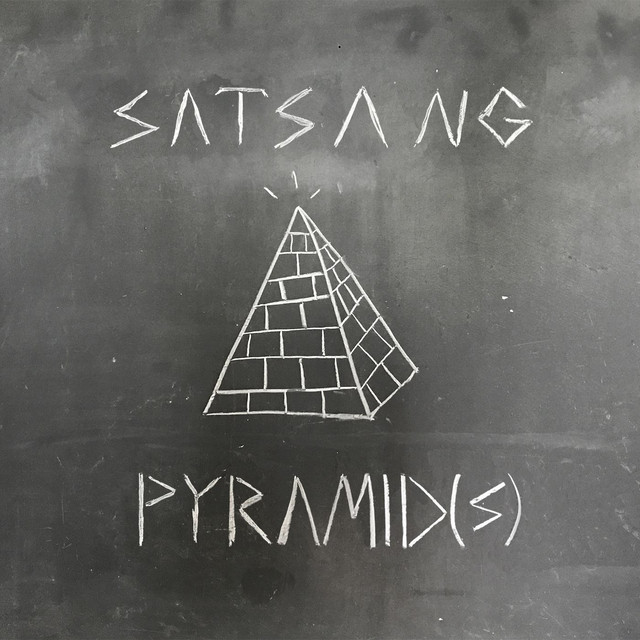 SATSANG
PYRAMID(S)